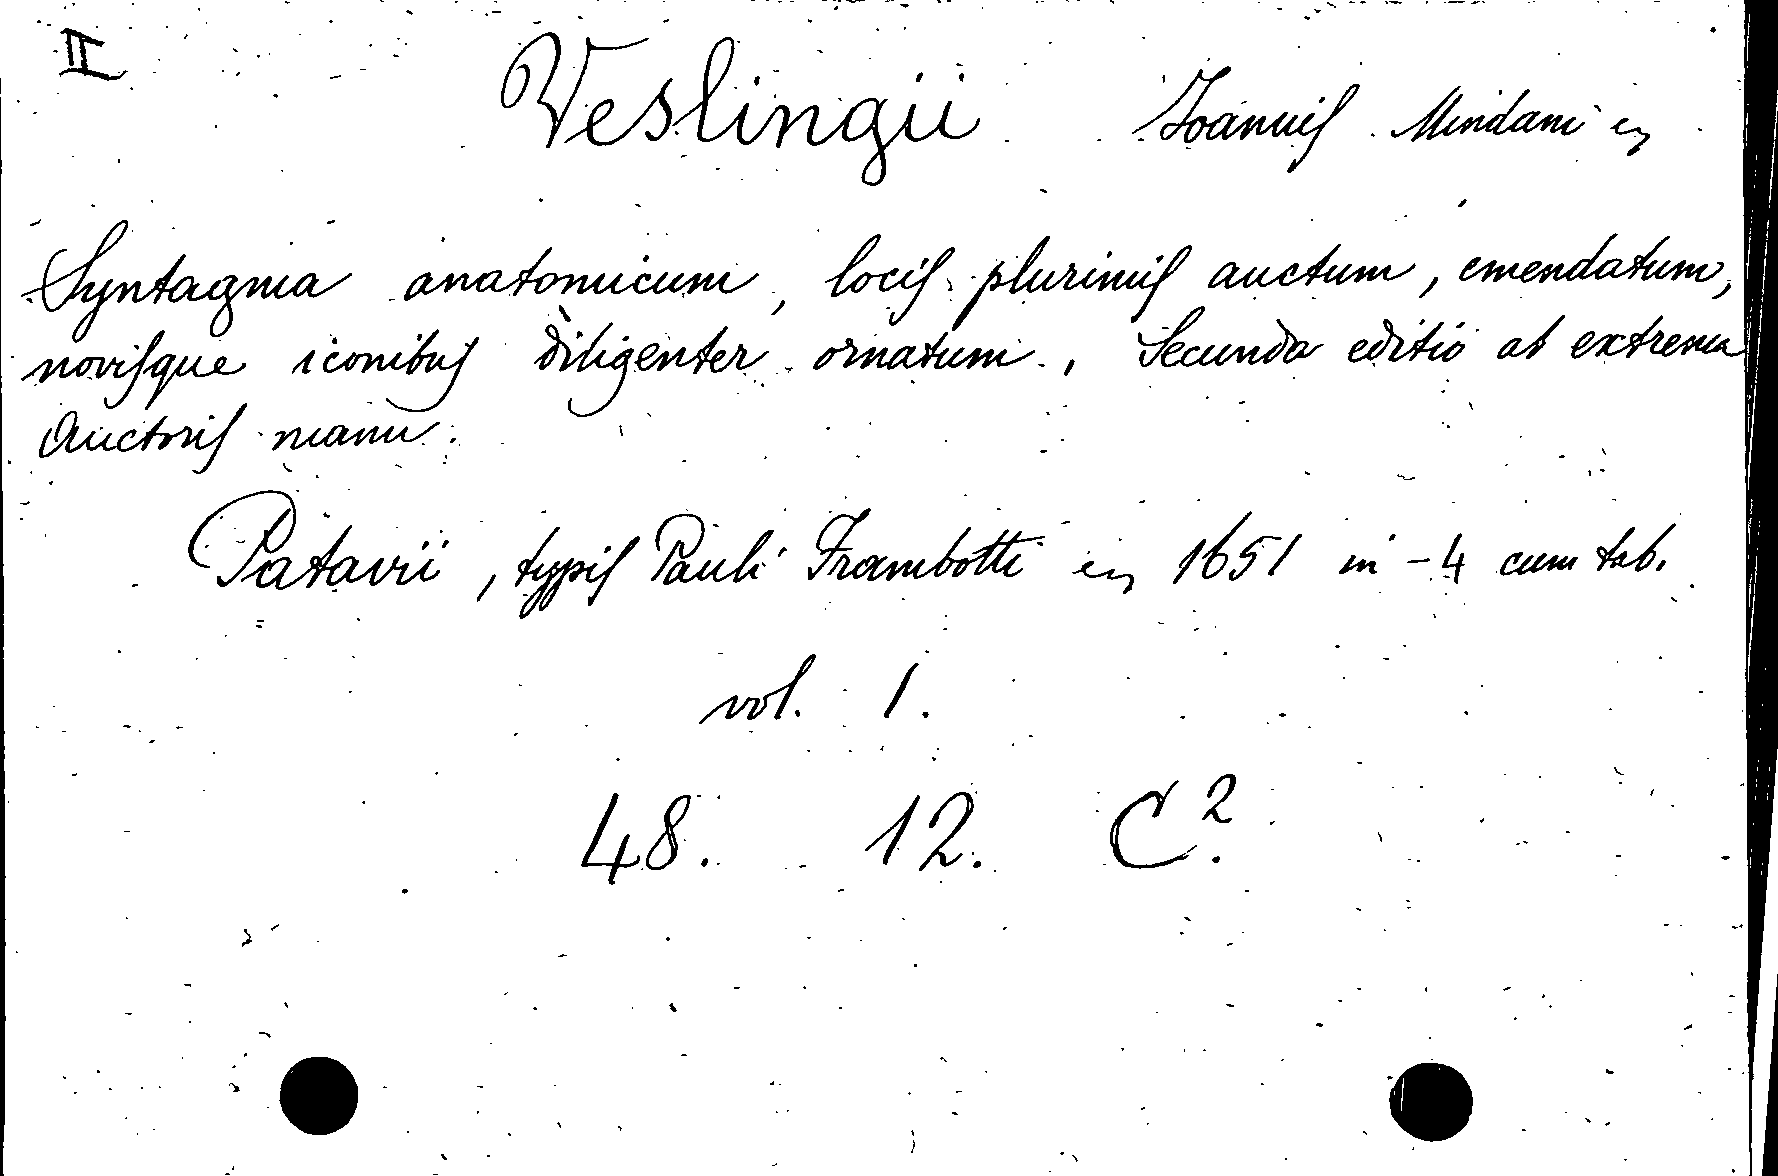 II
Veslingii Joannis Mindani &
Syntagma anatomicum, locis plurimis auctum, emendatum,
novisque iconibus diligenter ornatum, Secunda editio ab extrema
Auctoris manu.
Patavii, typis Pauli Frambotti & 1651 in-4 cum tab.
vol. 1.
48. 12. C².